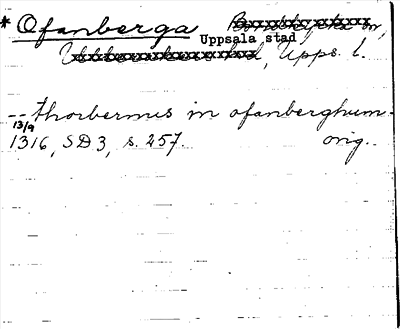 * Ofanberga
Uppsala stad
, Upps. l.
-- thorbermus in ofanberghum.
13/9
1316, SD3, s. 257. orig..